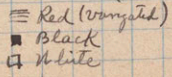 Red (variegated)
Black
White